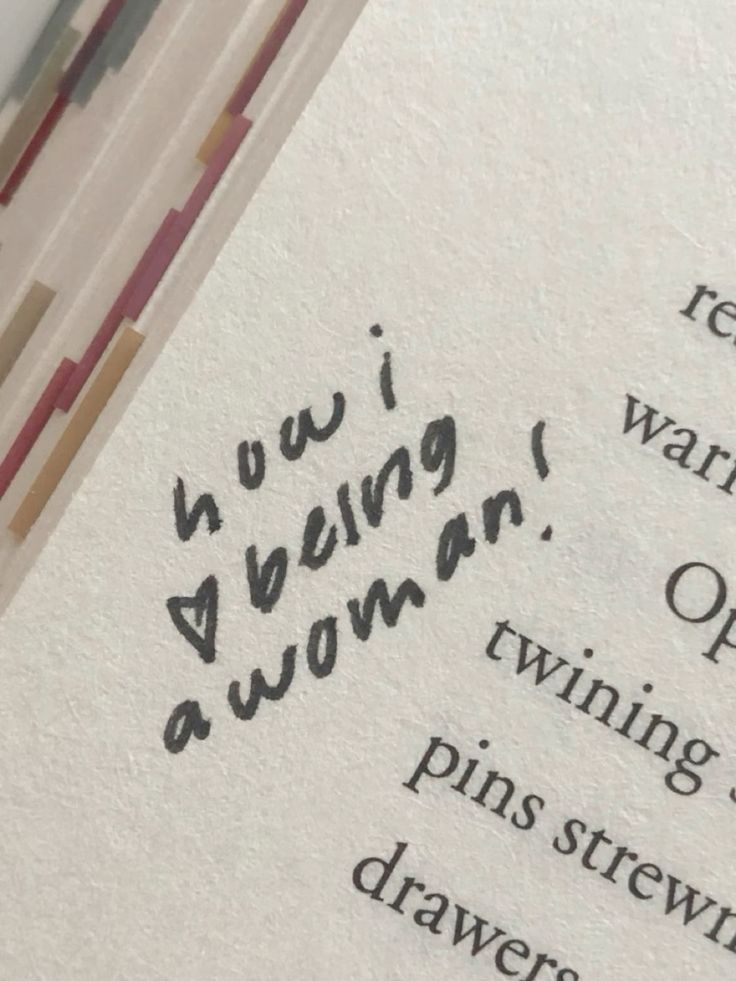 how i
♡ being
a woman!
twining
pins strewn
drawers